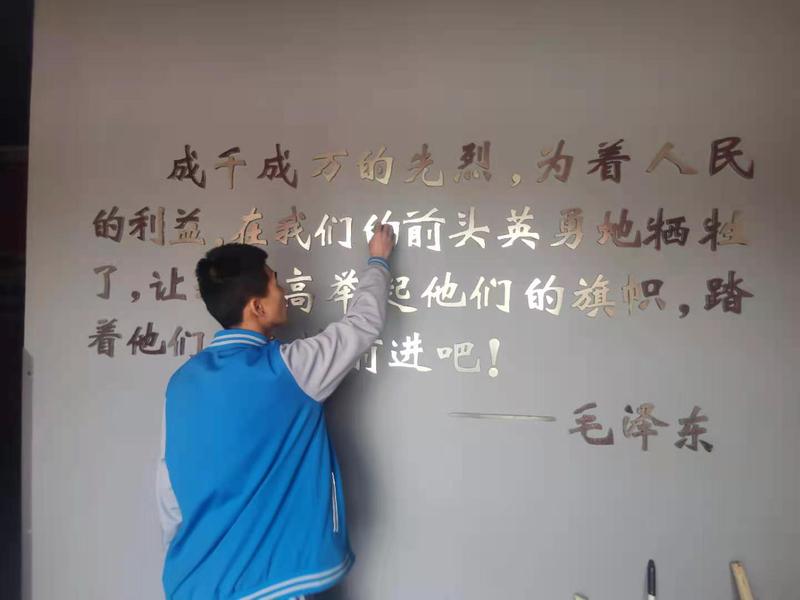 成千成万的先烈，为着人民
的利益，在我们的前头英勇地牺牲
了，让 高举起他们的旗帜，踏
着他们 前进吧！
——毛泽东